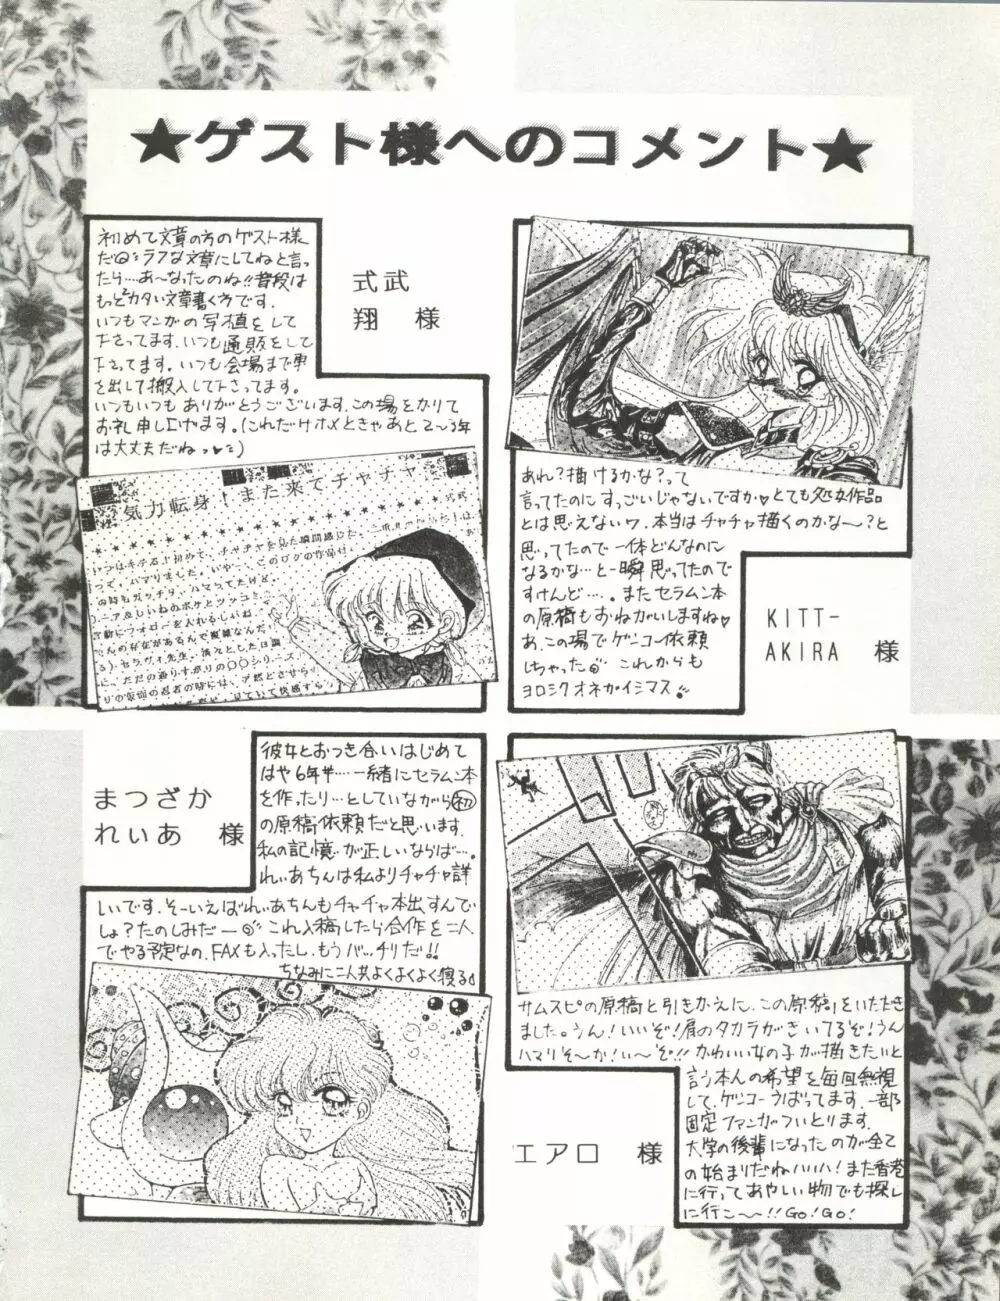 ★ゲスト様へのコメント★
初めて文章の方のゲスト様
ラフな文章にしてねと言っ
たら…あ〜なったのね!!普段は
もっとカタい文章書く方です。
いつもマンガの写植をして
下さってます。いつも通販をして
下さってます。いつも会場まで車
を出して搬入して下さってます。
いつもいつもありがとうございます。この場をかりて
お礼申し上げます。(これだけホメときゃあと2〜3年
は大丈夫だねっ♥)
式武
翔 様
気力転身!また来てチャチャ
あれ?描けるかな?って
言ってたのにすっごいじゃないですか♥とても処女作品
とは思えないワ。本当はチャチャ描くのかな〜?と
思ってたので一体どんなのに
なるかな…と一瞬思ってたので
すけんど…。またセラムン本
の原稿もおねがいしますね♥
あ、この場でゲンコー依頼
しちゃった これからも
ヨロシクオネガイシマス
KITT-
AKIRA 様
まつざか
れいあ 様
彼女とおつき合いはじめて
はや6年半…一緒にセラムン本
を作ったり…としていながら初
の原稿依頼だと思います。
私の記憶が正しいならば…。
れいあちんは私よりチャチャ詳
しいです。そーいえばれいあちんもチャチャ本出すんで
しょ?たのしみだー これ入稿したら合作を二人
でやる予定なの。FAXも入ったし、もうバッチリだ!!
ちなみに二人共よくよくよく寝る
サムスピの原稿と引きかえに、この原稿をいただき
ました。うん!いいぞ!尾のタカラがきいてるぞ!うん
ハマリそ〜か!い〜ぞ!!かわいい女の子が描きたいと
言う本人の希望を毎回無視
して、ゲンコーうばってます。一部
固定ファンがついとります。
大学の後輩になったのが全て
の始まりだねハハハ!また香港
に行ってあやしい物でも探し
に行こ〜!!Go!Go!
エアロ 様